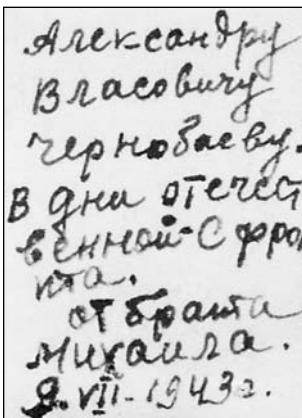 Александру
Власовичу
Чернобаеву.
В дни отечест
венной-С фро
нта.
от брата
Михаила.
9. VII-1943г.